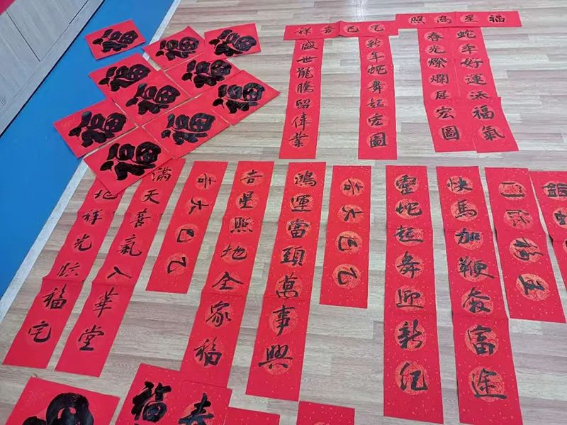 福星高照
乙巳吉祥
蛇年好運添福氣
春光燦爛展宏圖
新年蛇舞起宏圖
盛世龍騰留偉業
福
福
福
福
福
福
福
福
福
快馬加鞭奔富途
靈蛇起舞迎新紀
乙巳大吉
鴻運當頭萬事興
吉星照地全家福
乙巳大吉
滿天喜氣入華堂
地祥光臨福宅
福